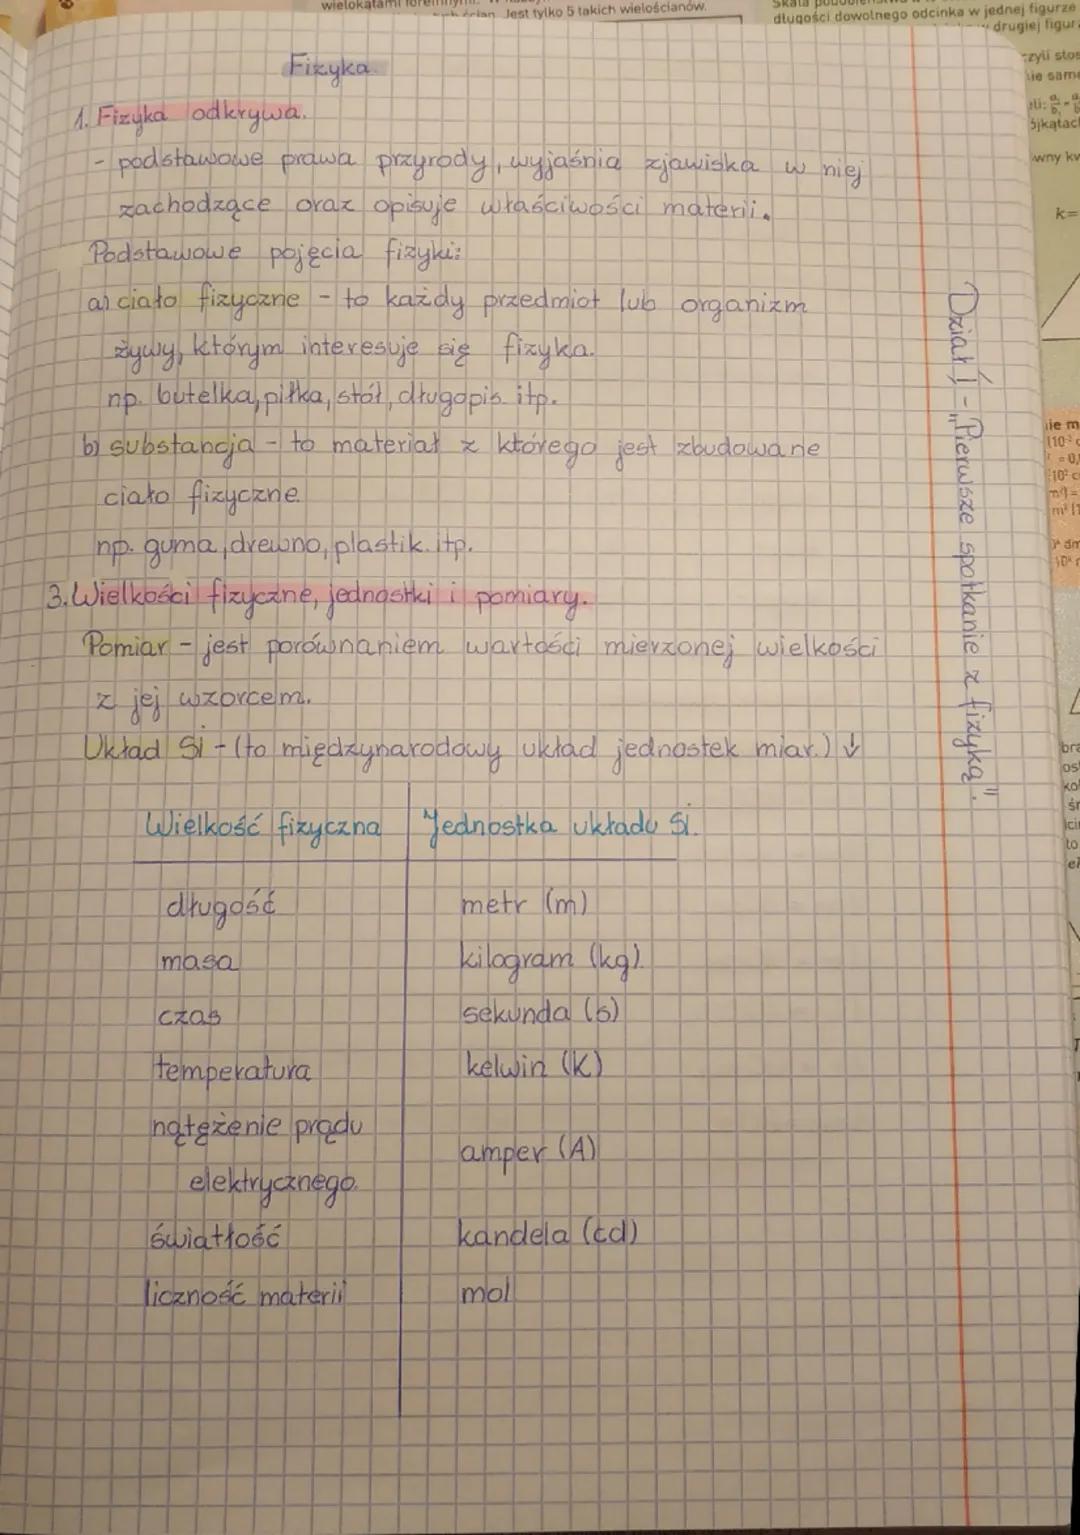 wielokątami foremnymi.
ścian. Jest tylko 5 takich wielościanów.
długości dowolnego odcinka w jednej figurze
drugiej figur
czyli stos
k=
Fizyka.
1. Fizyka odkrywa.
- podstawowe prawa przyrody, wyjaśnia zjawiska w niej
zachodzące oraz opisuje właściwości materii.
Podstawowe pojęcia fizyki:
a) ciało fizyczne - to każdy przedmiot lub organizm
żywy, którym interesuje się fizyka.
np. butelka, piłka, stół, długopis itp.
b) substancja - to materiał z którego jest zbudowane
ciało fizyczne.
np. guma, drewno, plastik. itp.
3. Wielkości fizyczne, jednostki i pomiary.
Pomiar - jest porównaniem wartości mierzonej wielkości
z jej wzorcem.
Układ Si - (to międzynarodowy układ jednostek miar.) ↓
Wielkość fizyczna Jednostka układu Si.
długość metr (m)
masa kilogram (kg)
czas sekunda (s)
temperatura kelwin (K)
natężenie prądu
elektrycznego. amper (A)
światłość kandela (cd)
liczność materii mol
Dział 1 - "Pierwsze spotkanie z fizyką".